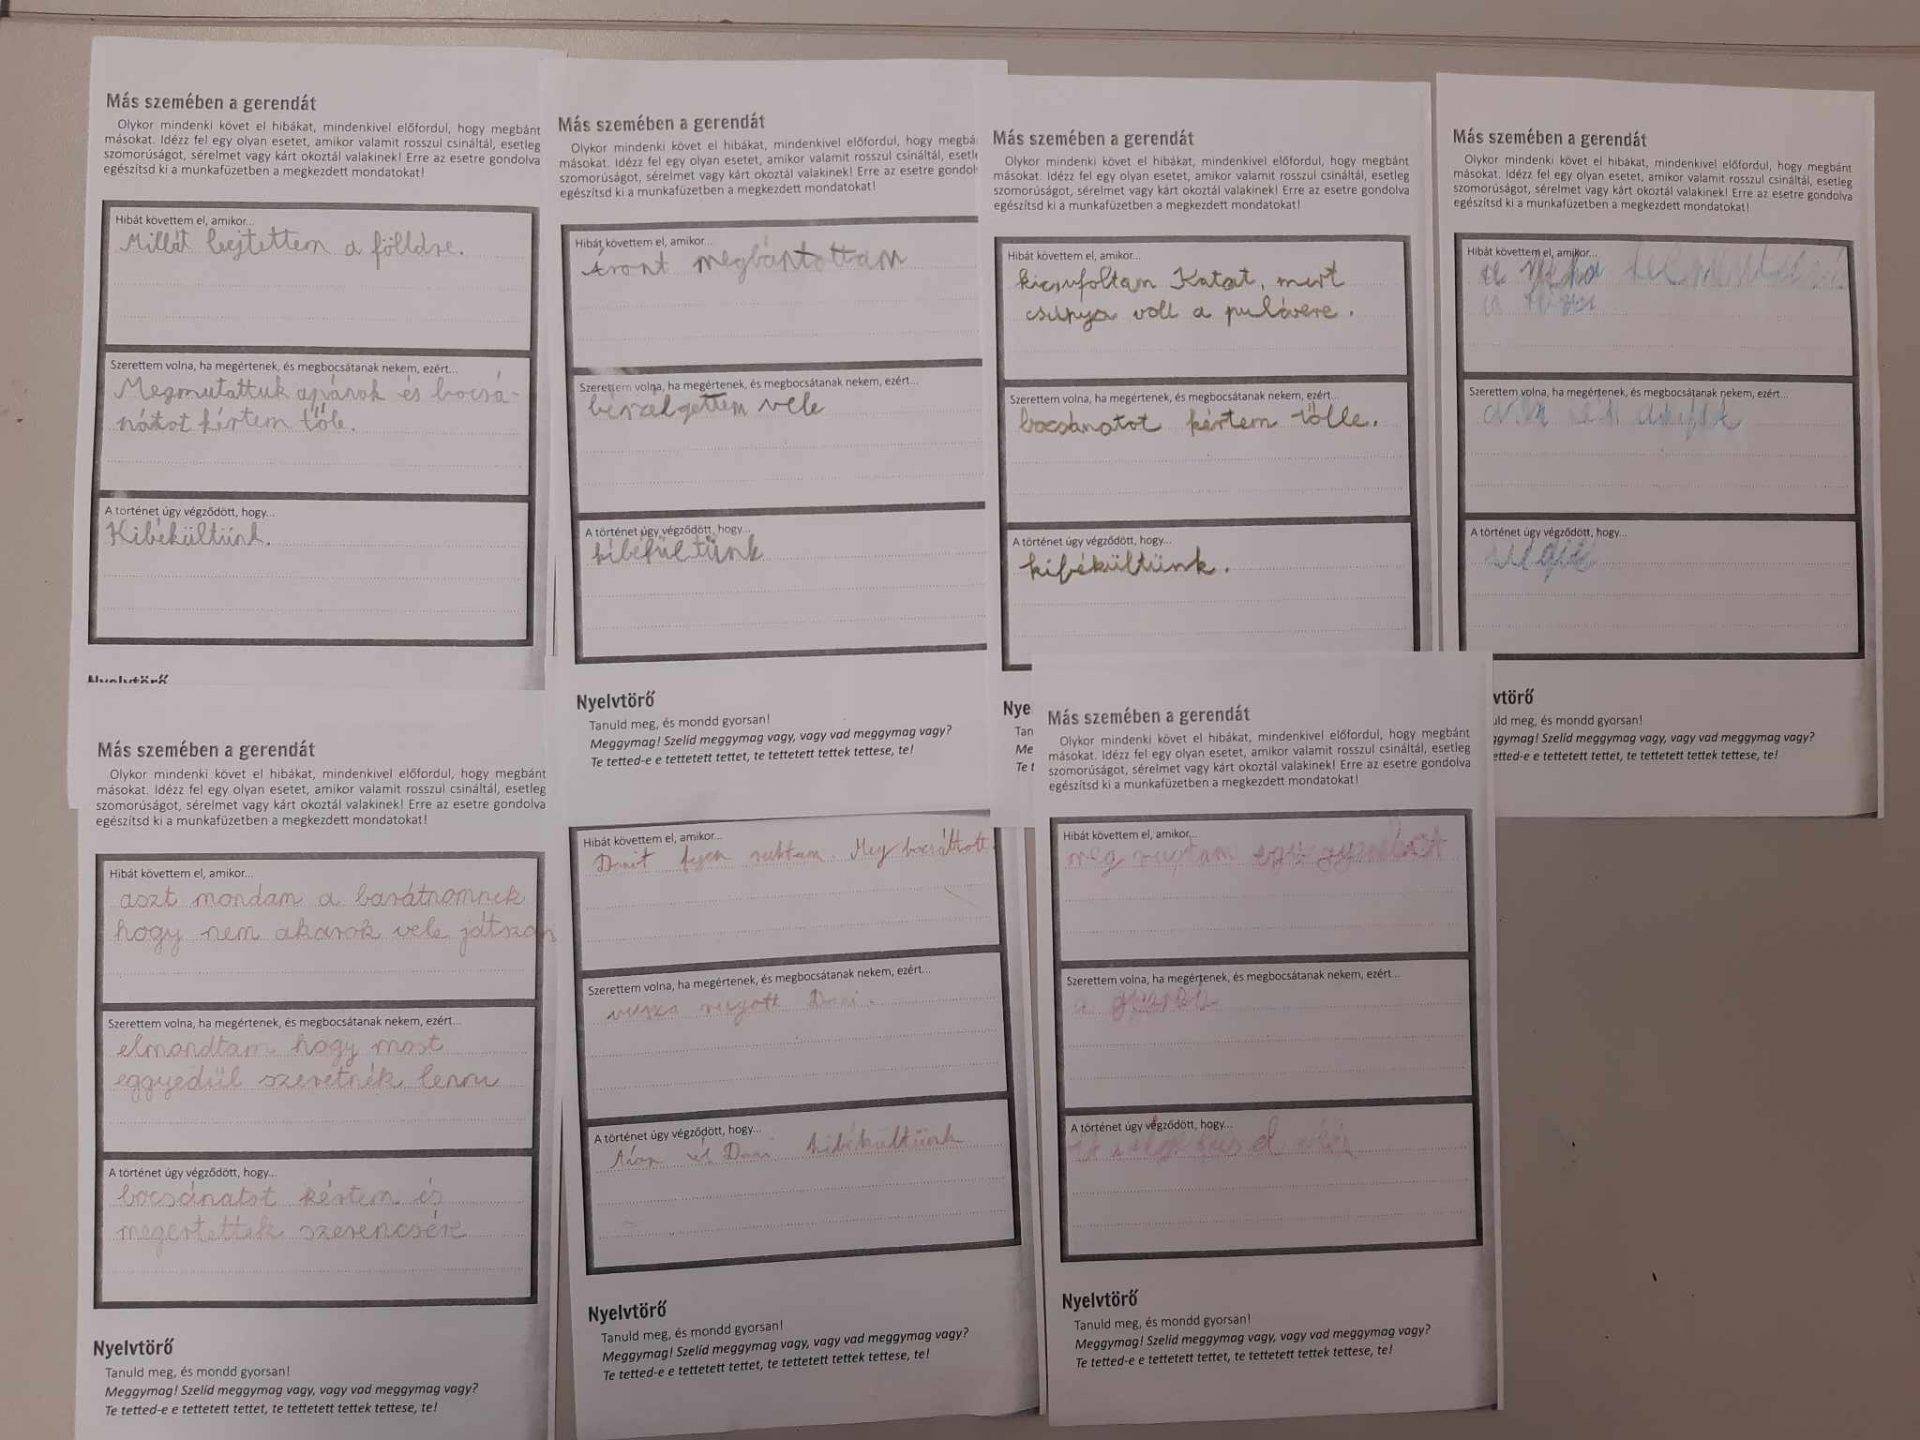 Más szemében a gerendát
Olykor mindenki követ el hibákat, mindenkivel előfordul, hogy megbánt
másokat. Idézz fel egy olyan esetet, amikor valamit rosszul csináltál, esetleg
szomorúságot, sérelmet vagy kárt okoztál valakinek! Erre az esetre gondolva
egészítsd ki a munkafüzetben a megkezdett mondatokat!
Hibát követtem el, amikor...
Millát lejtettem a földre.
Szerettem volna, ha megértenek, és megbocsátanak nekem, ezért...
Megmutattuk apának és bocsá-
nátot kértem tőle.
A történet úgy végződött, hogy...
Kibékültünk.
Nyelvtörő
Más szemében a gerendát
Olykor mindenki követ el hibákat, mindenkivel előfordul, hogy megbá
másokat. Idézz fel egy olyan esetet, amikor valamit rosszul csináltál, esetle
szomorúságot, sérelmet vagy kárt okoztál valakinek! Erre az esetre gondol
egészítsd ki a munkafüzetben a megkezdett mondatokat!
Hibát követtem el, amikor...
Áront megbántottam
Szerettem volna, ha megértenek, és megbocsátanak nekem, ezért...
beszélgettem vele
A történet úgy végződött, hogy...
kibékültünk
Nyelvtörő
Tanuld meg, és mondd gyorsan!
Meggymag! Szelíd meggymag vagy, vagy vad meggymag vagy?
Te tetted-e e tettetett tettet, te tettetett tettek tettese, te!
Más szemében a gerendát
Olykor mindenki követ el hibákat, mindenkivel előfordul, hogy megbánt
másokat. Idézz fel egy olyan esetet, amikor valamit rosszul csináltál, esetleg
szomorúságot, sérelmet vagy kárt okoztál valakinek! Erre az esetre gondolva
egészítsd ki a munkafüzetben a megkezdett mondatokat!
Hibát követtem el, amikor...
kicsufoltam Katat, mert
csunya voll a pulóvere.
Szerettem volna, ha megértenek, és megbocsátanak nekem, ezért...
bocsánatot kértem tölle.
A történet úgy végződött, hogy...
kibékültünk.
Nye
Tan
Me
Te t
Más szemében a gerendát
Olykor mindenki követ el hibákat, mindenkivel előfordul, hogy megbánt
másokat. Idézz fel egy olyan esetet, amikor valamit rosszul csináltál, esetleg
szomorúságot, sérelmet vagy kárt okoztál valakinek! Erre az esetre gondolva
egészítsd ki a munkafüzetben a megkezdett mondatokat!
Hibát követtem el, amikor...
Szerettem volna, ha megértenek, és megbocsátanak nekem, ezért...
A történet úgy végződött, hogy...
vtörő
uld meg, és mondd gyorsan!
ggymag! Szelíd meggymag vagy, vagy vad meggymag vagy?
etted-e e tettetett tettet, te tettetett tettek tettese, te!
Más szemében a gerendát
Olykor mindenki követ el hibákat, mindenkivel előfordul, hogy megbánt
másokat. Idézz fel egy olyan esetet, amikor valamit rosszul csináltál, esetleg
szomorúságot, sérelmet vagy kárt okoztál valakinek! Erre az esetre gondolva
egészítsd ki a munkafüzetben a megkezdett mondatokat!
Hibát követtem el, amikor...
aszt mondam a barátnomnek
hogy nem akarok vele játszan
Szerettem volna, ha megértenek, és megbocsátanak nekem, ezért...
elmondtam hogy most
eggyedül szeretnék lenni
A történet úgy végződött, hogy...
bocsánatot kértem és
megértettek szerencsére
Nyelvtörő
Tanuld meg, és mondd gyorsan!
Meggymag! Szelíd meggymag vagy, vagy vad meggymag vagy?
Te tetted-e e tettetett tettet, te tettetett tettek tettese, te!
Hibát követtem el, amikor...
Danit fejen
Szerettem volna, ha megértenek, és megbocsátanak nekem, ezért...
rugott Dani.
A történet úgy végződött, hogy...
és Dani kibékultünk
Nyelvtörő
Tanuld meg, és mondd gyorsan!
Meggymag! Szelíd meggymag vagy, vagy vad meggymag vagy?
Te tetted-e e tettetett tettet, te tettetett tettek tettese, te!
Más szemében a gerendát
Olykor mindenki követ el hibákat, mindenkivel előfordul, hogy megbánt
másokat. Idézz fel egy olyan esetet, amikor valamit rosszul csináltál, esetleg
szomorúságot, sérelmet vagy kárt okoztál valakinek! Erre az esetre gondolva
egészítsd ki a munkafüzetben a megkezdett mondatokat!
Hibát követtem el, amikor...
meg
Szerettem volna, ha megértenek, és megbocsátanak nekem, ezért...
A történet úgy végződött, hogy...
Nyelvtörő
Tanuld meg, és mondd gyorsan!
Meggymag! Szelíd meggymag vagy, vagy vad meggymag vagy?
Te tetted-e e tettetett tettet, te tettetett tettek tettese, te!